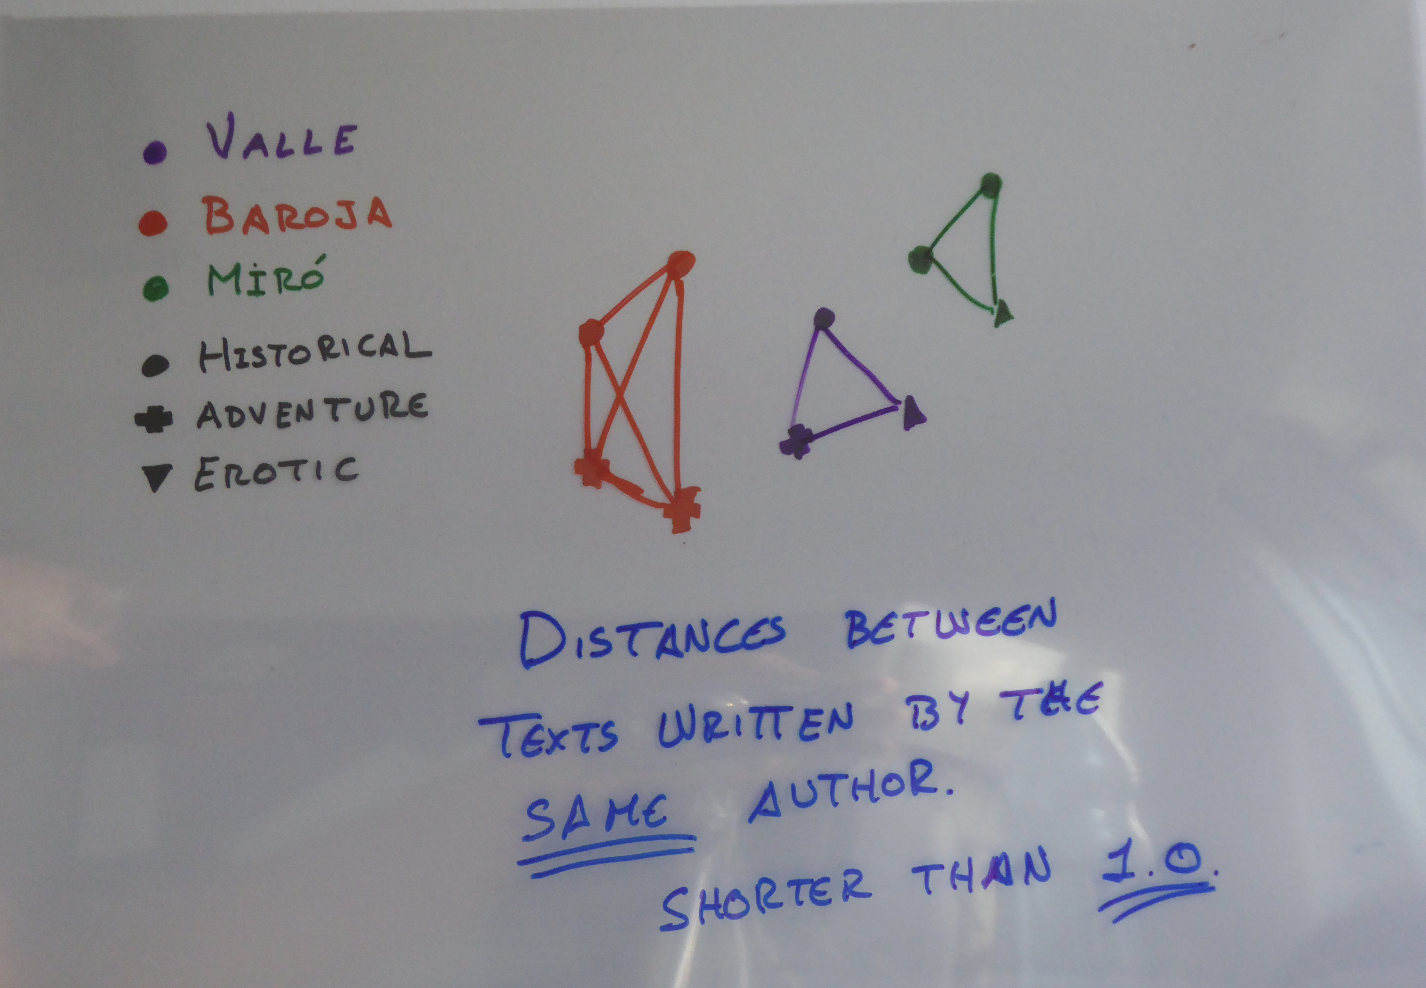 VALLE
BAROJA
MIRÓ
HISTORICAL
ADVENTURE
EROTIC
DISTANCES BETWEEN
TEXTS WRITTEN BY THE
SAME AUTHOR.
SHORTER THAN 1.0.